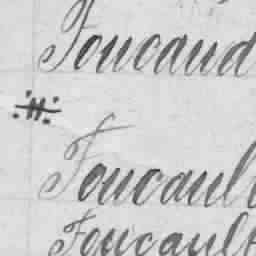 Foucaud
Foucault
Foucault